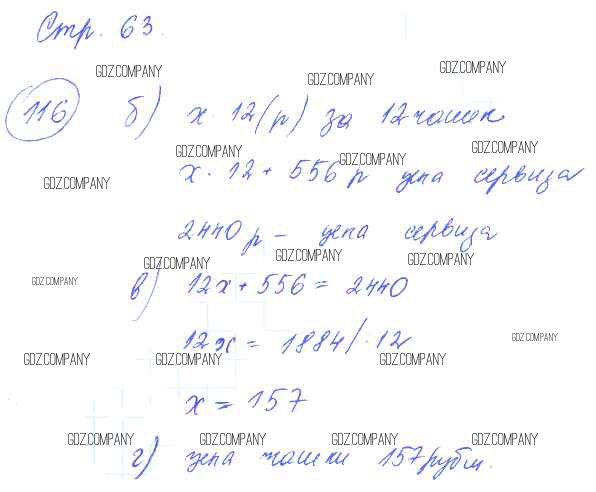 Стр. 63.
GDZ.COMPANY GDZ.COMPANY GDZ.COMPANY
116 б) x · 12 (р) за 12 чашек
GDZ.COMPANY GDZ.COMPANY GDZ.COMPANY GDZ.COMPANY
x · 12 + 556 р цена сервиза
2440 р – цена сервиза
GDZ.COMPANY GDZ.COMPANY GDZ.COMPANY
GDZ.COMPANY
в) 12x + 556 = 2440
12x = 1884 / · 12
GDZ.COMPANY
GDZ.COMPANY GDZ.COMPANY GDZ.COMPANY
x = 157
GDZ.COMPANY GDZ.COMPANY GDZ.COMPANY GDZ.COMPANY
г) цена чашки 157 рубл.